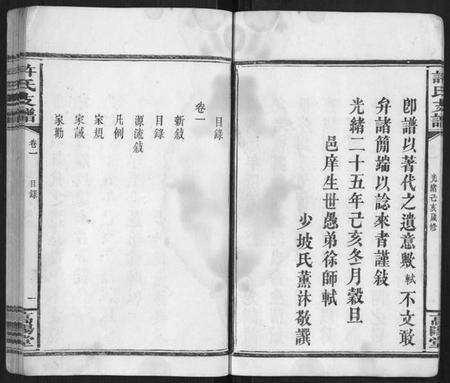 許氏支譜
光緒己亥歲修
高陽堂
卽譜以著代之遺意歟軾不文敢
弁諸簡端以諗來者謹敍
光緒二十五年己亥冬月穀旦
邑庠生世愚弟徐師軾
少坡氏薰沐敬譔
目錄
卷一
新敍
目錄
源流敍
凡例
家規
家誡
家勸
許氏支譜
卷一
目錄
一
高陽堂